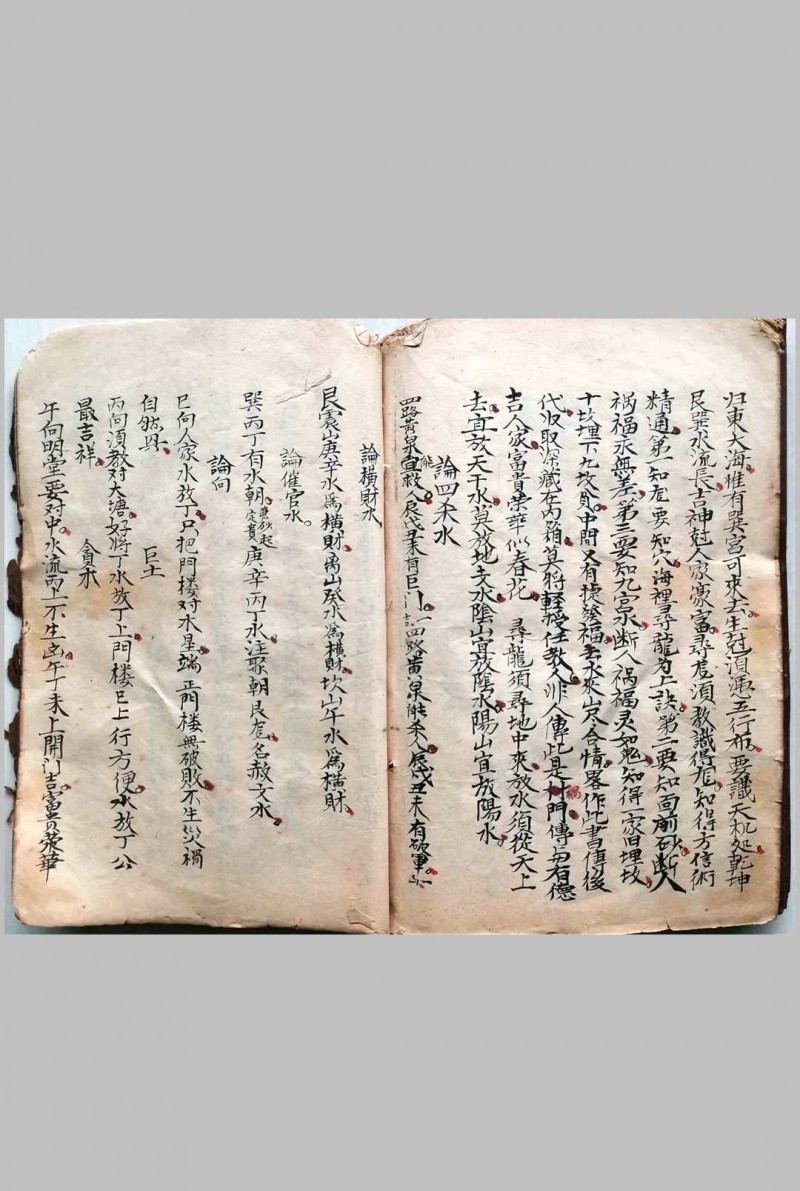 归東大海惟有巽宮可來去生尅湏通五行布要識天机処乾坤
艮巽水流長吉神尅人家豪富尋龙湏教識得龙知得方信術
精通第一知龙要知穴海裡尋龍为上訣第二要知面前砂断人
祸福永無差第三要知九宮水断人祸福灵如鬼知得一家旧埋坟
十坟埋下九坟貧中間又有棟發福去水來山尽合情畧作此書傳後
代收取深藏在内箱莫将輕授任教人非人傳此是禍門傳与有德
吉人家富貴荣華似春花 尋龍須尋地中來放水須從天上
去宜放天干水莫放地支水陰山宜放陰水陽山宜放陽水
論四杀水
四路黄泉能救人辰戌丑未有巨門四路黄泉能杀人辰戌丑未有破軍
論橫財水
艮震山庚辛水為橫財离山癸水為橫財坎山午水為橫財
論催官水
巽丙丁有水朝兼砂起定貴庚辛丙丁水注聚朝艮龙名赦文水
論向
巳向人家水放丁只把門楼对水星端正門楼無破敗不生災禍
自然興 巨土
丙向湏教对大塘好将丁水放丁上門楼巳上行方便水放丁公
最吉祥 貪木
午向明堂要对中水流丙上不生凶午丁未上開門吉富貴荣華